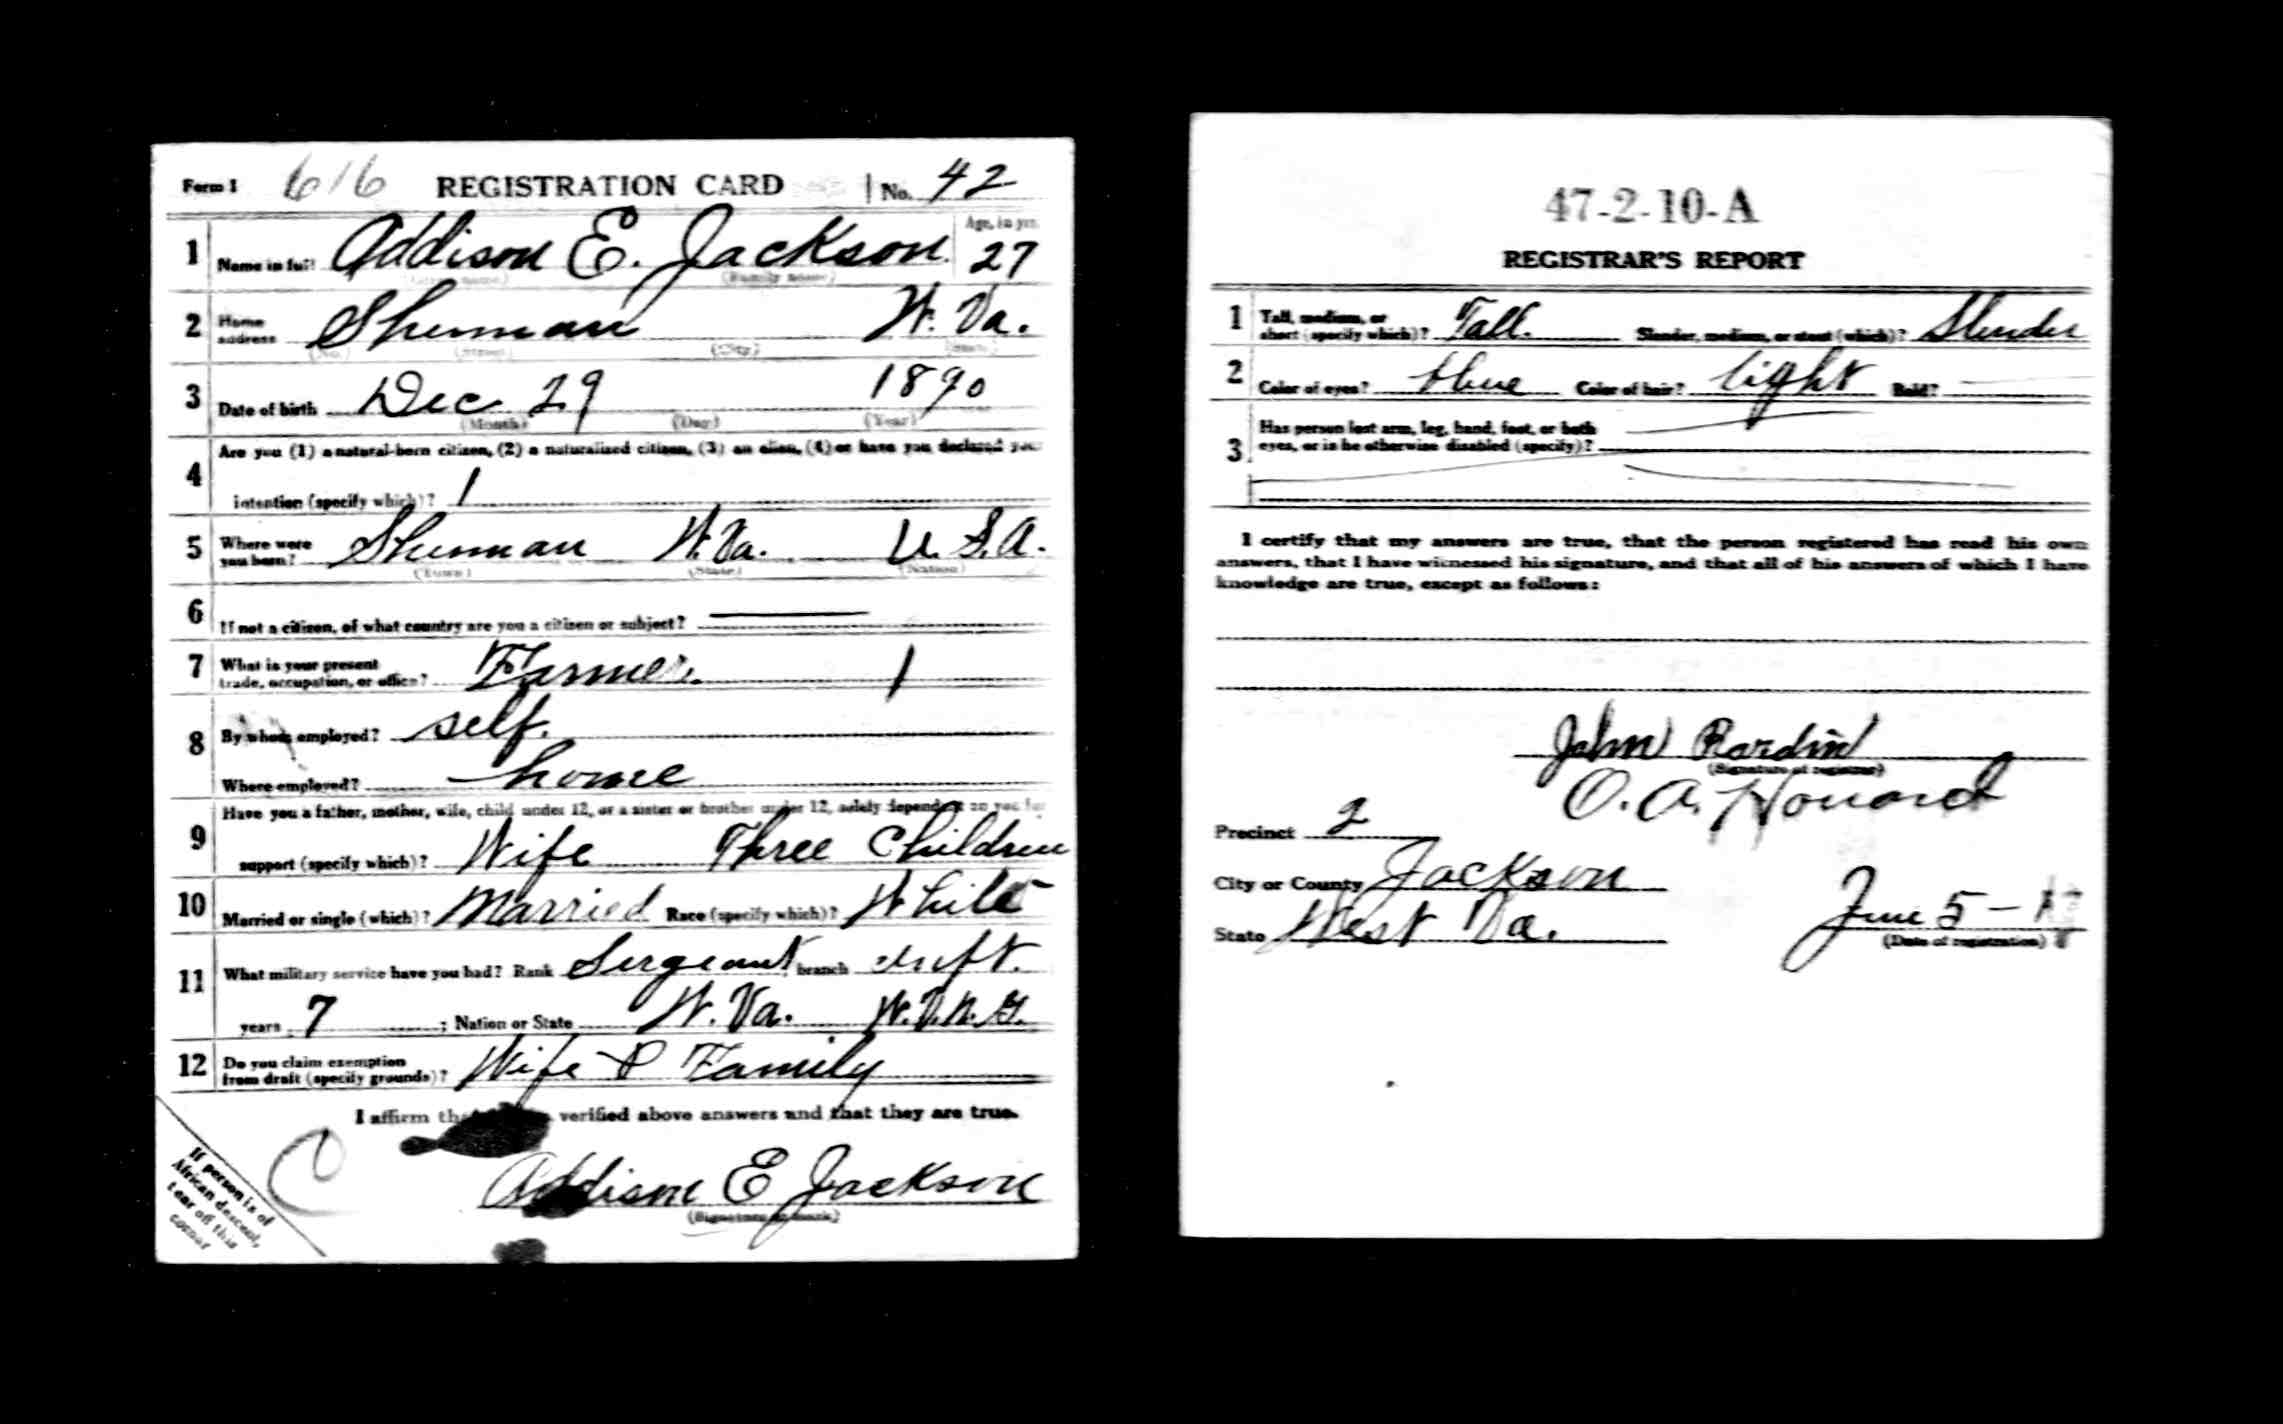 Form 1 616 REGISTRATION CARD No. 42
1 Name in full Addison E. Jackson. Age, in yrs. 27
(Given name) (Family name)
2 Home address Sherman W. Va.
(No.) (Street) (City) (State)
3 Date of birth Dec 29 1890
(Month) (Day) (Year)
4 Are you (1) a natural-born citizen, (2) a naturalized citizen, (3) an alien, (4) or have you declared your
intention (specify which)? 1
5 Where were you born? Sherman W. Va. U. S. A.
(Town) (State) (Nation)
6 If not a citizen, of what country are you a citizen or subject?
7 What is your present trade, occupation, or office? Farmer. 1
8 By whom employed? self.
Where employed? home
9 Have you a father, mother, wife, child under 12, or a sister or brother under 12, solely dependent on you for
support (specify which)? Wife Three Children
10 Married or single (which)? Married Race (specify which)? White
11 What military service have you had? Rank Sergeant branch Inft.
years 7 ; Nation or State W. Va. W.V.N.G.
12 Do you claim exemption from draft (specify grounds)? Wife & Family
I affirm that verified above answers and that they are true.
C
Addison E Jackson
(Signature or mark)
If person is of
African descent,
tear off this
corner
47-2-10-A
REGISTRAR'S REPORT
1 Tall, medium, or short (specify which)? Tall. Slender, medium, or stout (which)? Slender
2 Color of eyes? blue Color of hair? light Bald?
3 Has person lost arm, leg, hand, foot, or both
eyes, or is he otherwise disabled (specify)?
I certify that my answers are true, that the person registered has read his own
answers, that I have witnessed his signature, and that all of his answers of which I have
knowledge are true, except as follows:
John Rardin
(Signature of registrar)
O. A. Howard
Precinct 2
City or County Jackson
State West Va. June 5 - 17
(Date of registration)